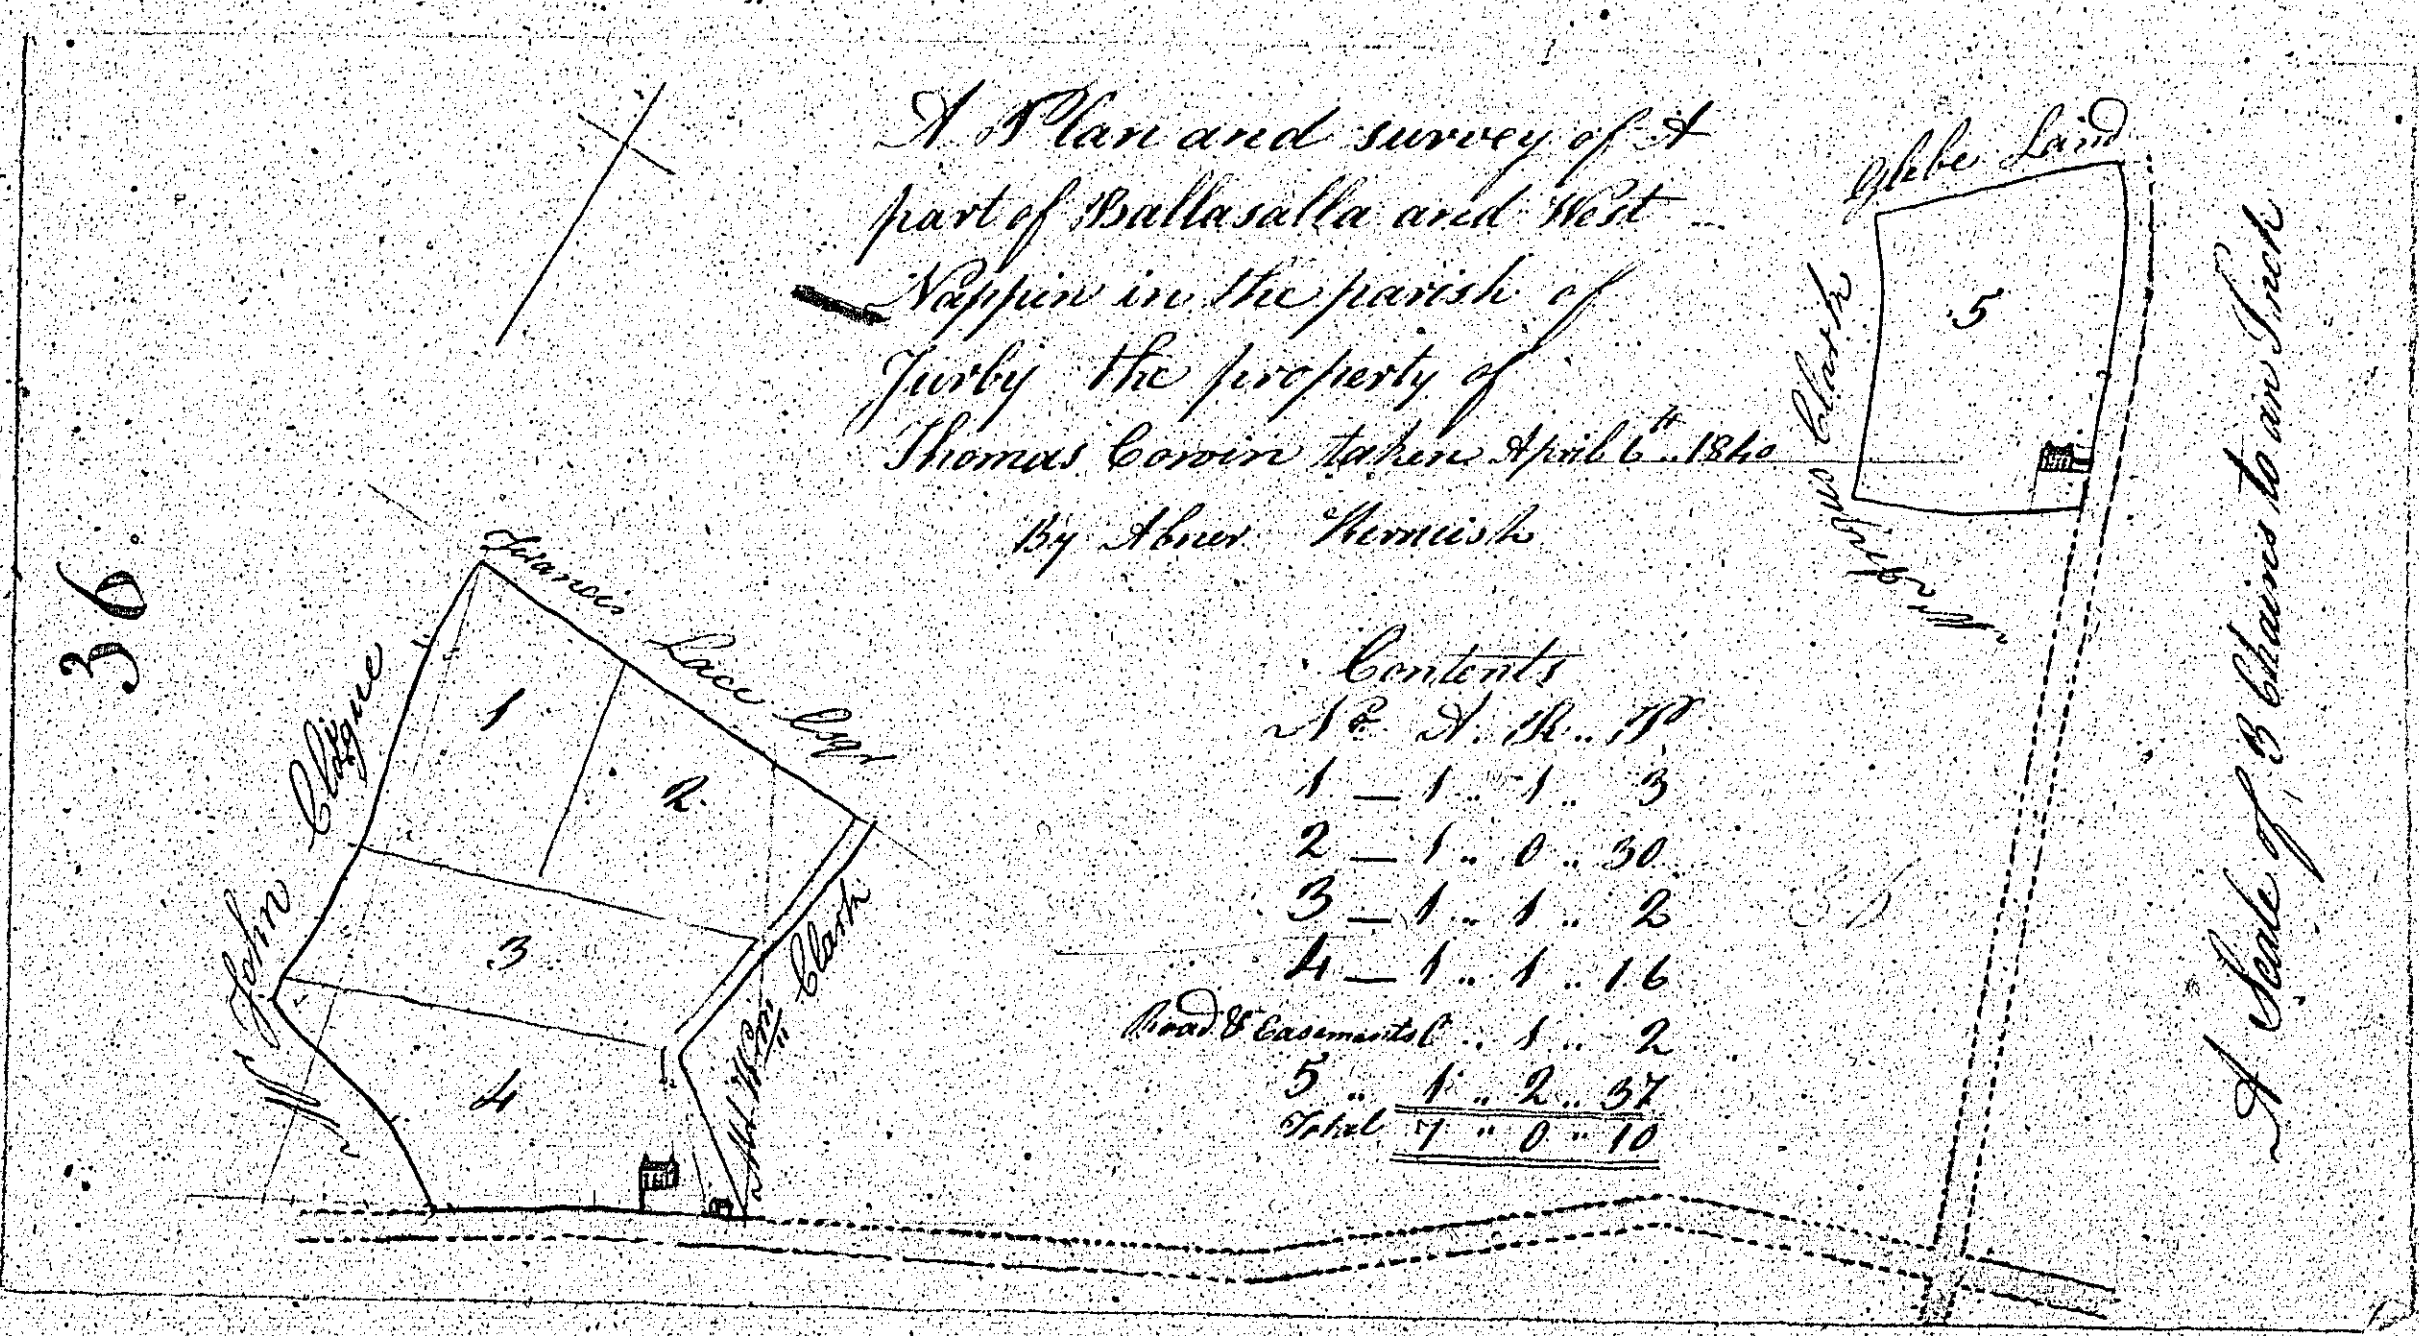 A Plan and survey of A
part of Ballasalla and West
Nappin in the parish of
Jurby the property of
Thomas Cowin taken April 6th .. 1840
By Abner Kerruish
Glebe Land
Clark
5
A Scale of 3 Chains to an Inch
36.
Francis Lace Esqr
Mr John Clague
1
2
3
4
Wm Clark
Contents
No A. R .. P
1 — 1 .. 1 .. 3
2 — 1 .. 0 .. 30
3 — 1 .. 1 .. 2
4 — 1 .. 1 .. 16
Road & Easements 0 .. 1 .. 2
5 .. 1 .. 2 .. 37
Total 7 " 0 " 10